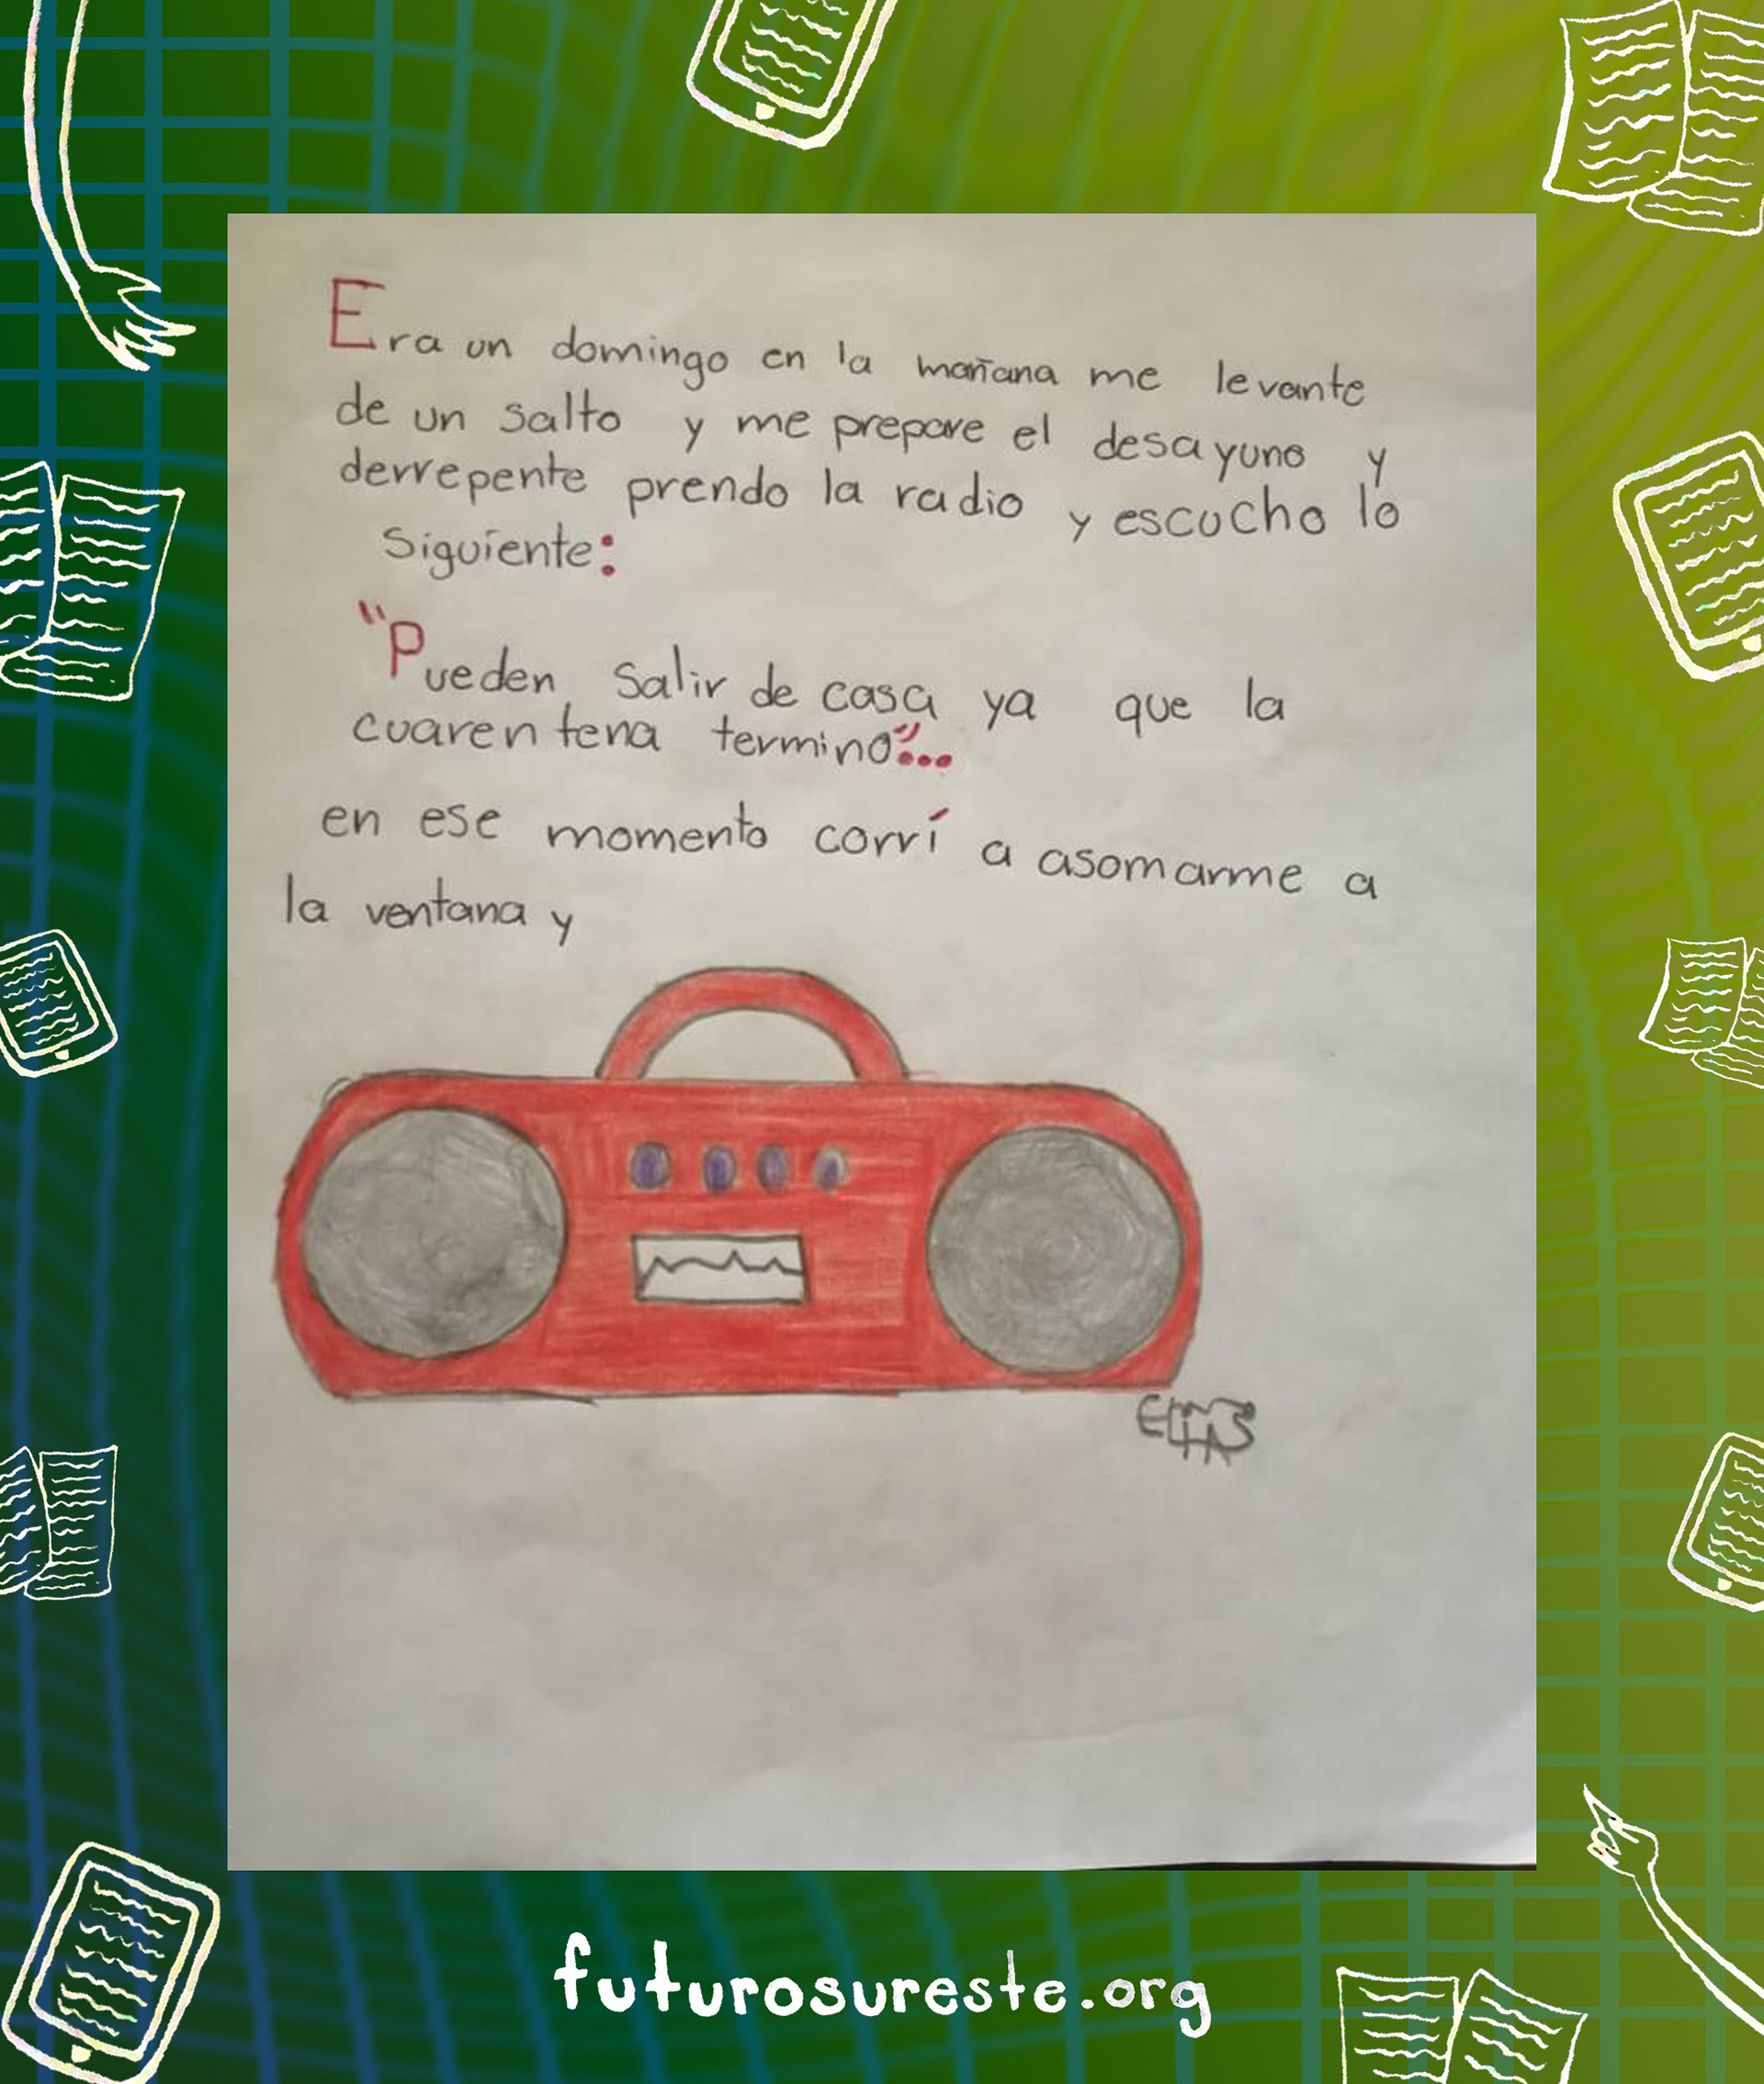 Era un domingo en la mañana me levante
de un salto y me prepare el desayuno y
derrepente prendo la radio y escucho lo
siguiente:
"Pueden salir de casa ya que la
cuarentena termino"...
en ese momento corrí a asomarme a
la ventana y
ELIAS
futurosureste.org